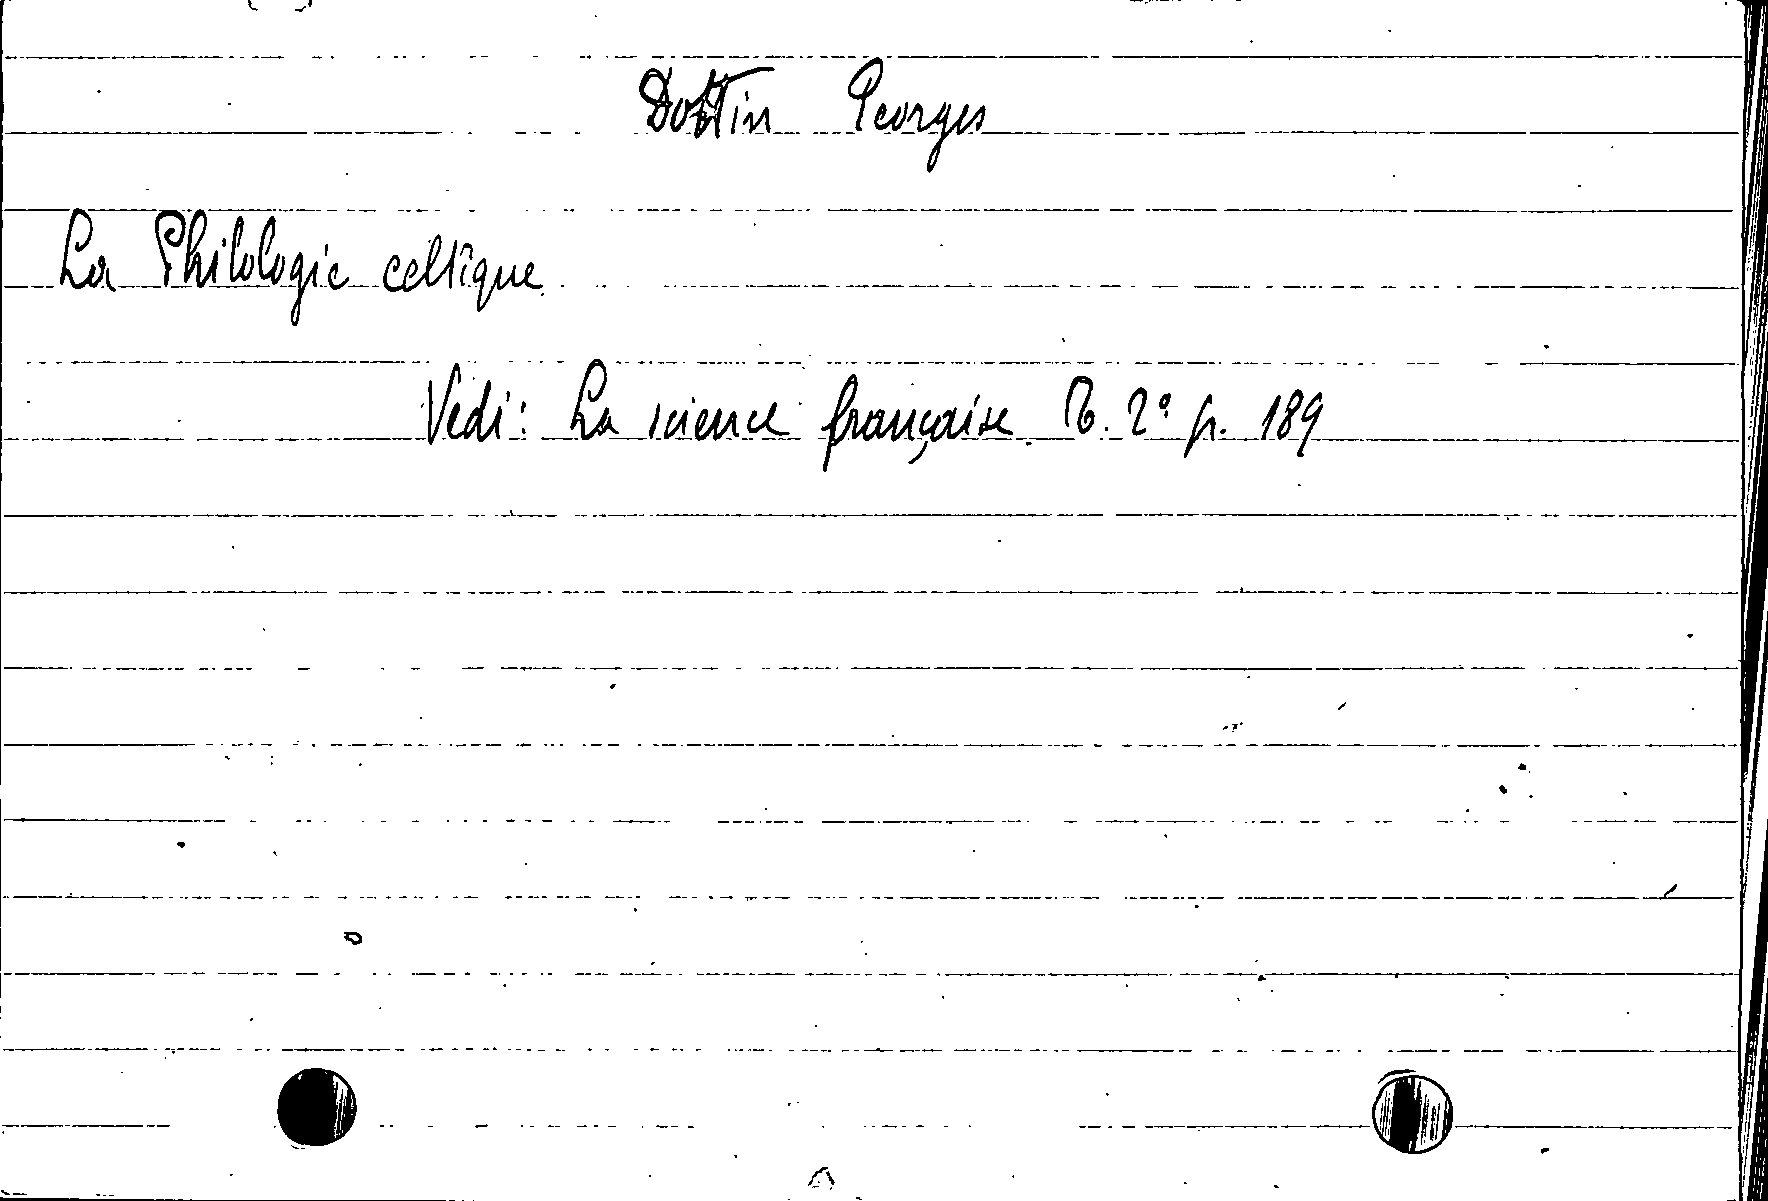 Dottin Georges
La Philologie celtique
Vedi: La science française. T. 2° p. 189